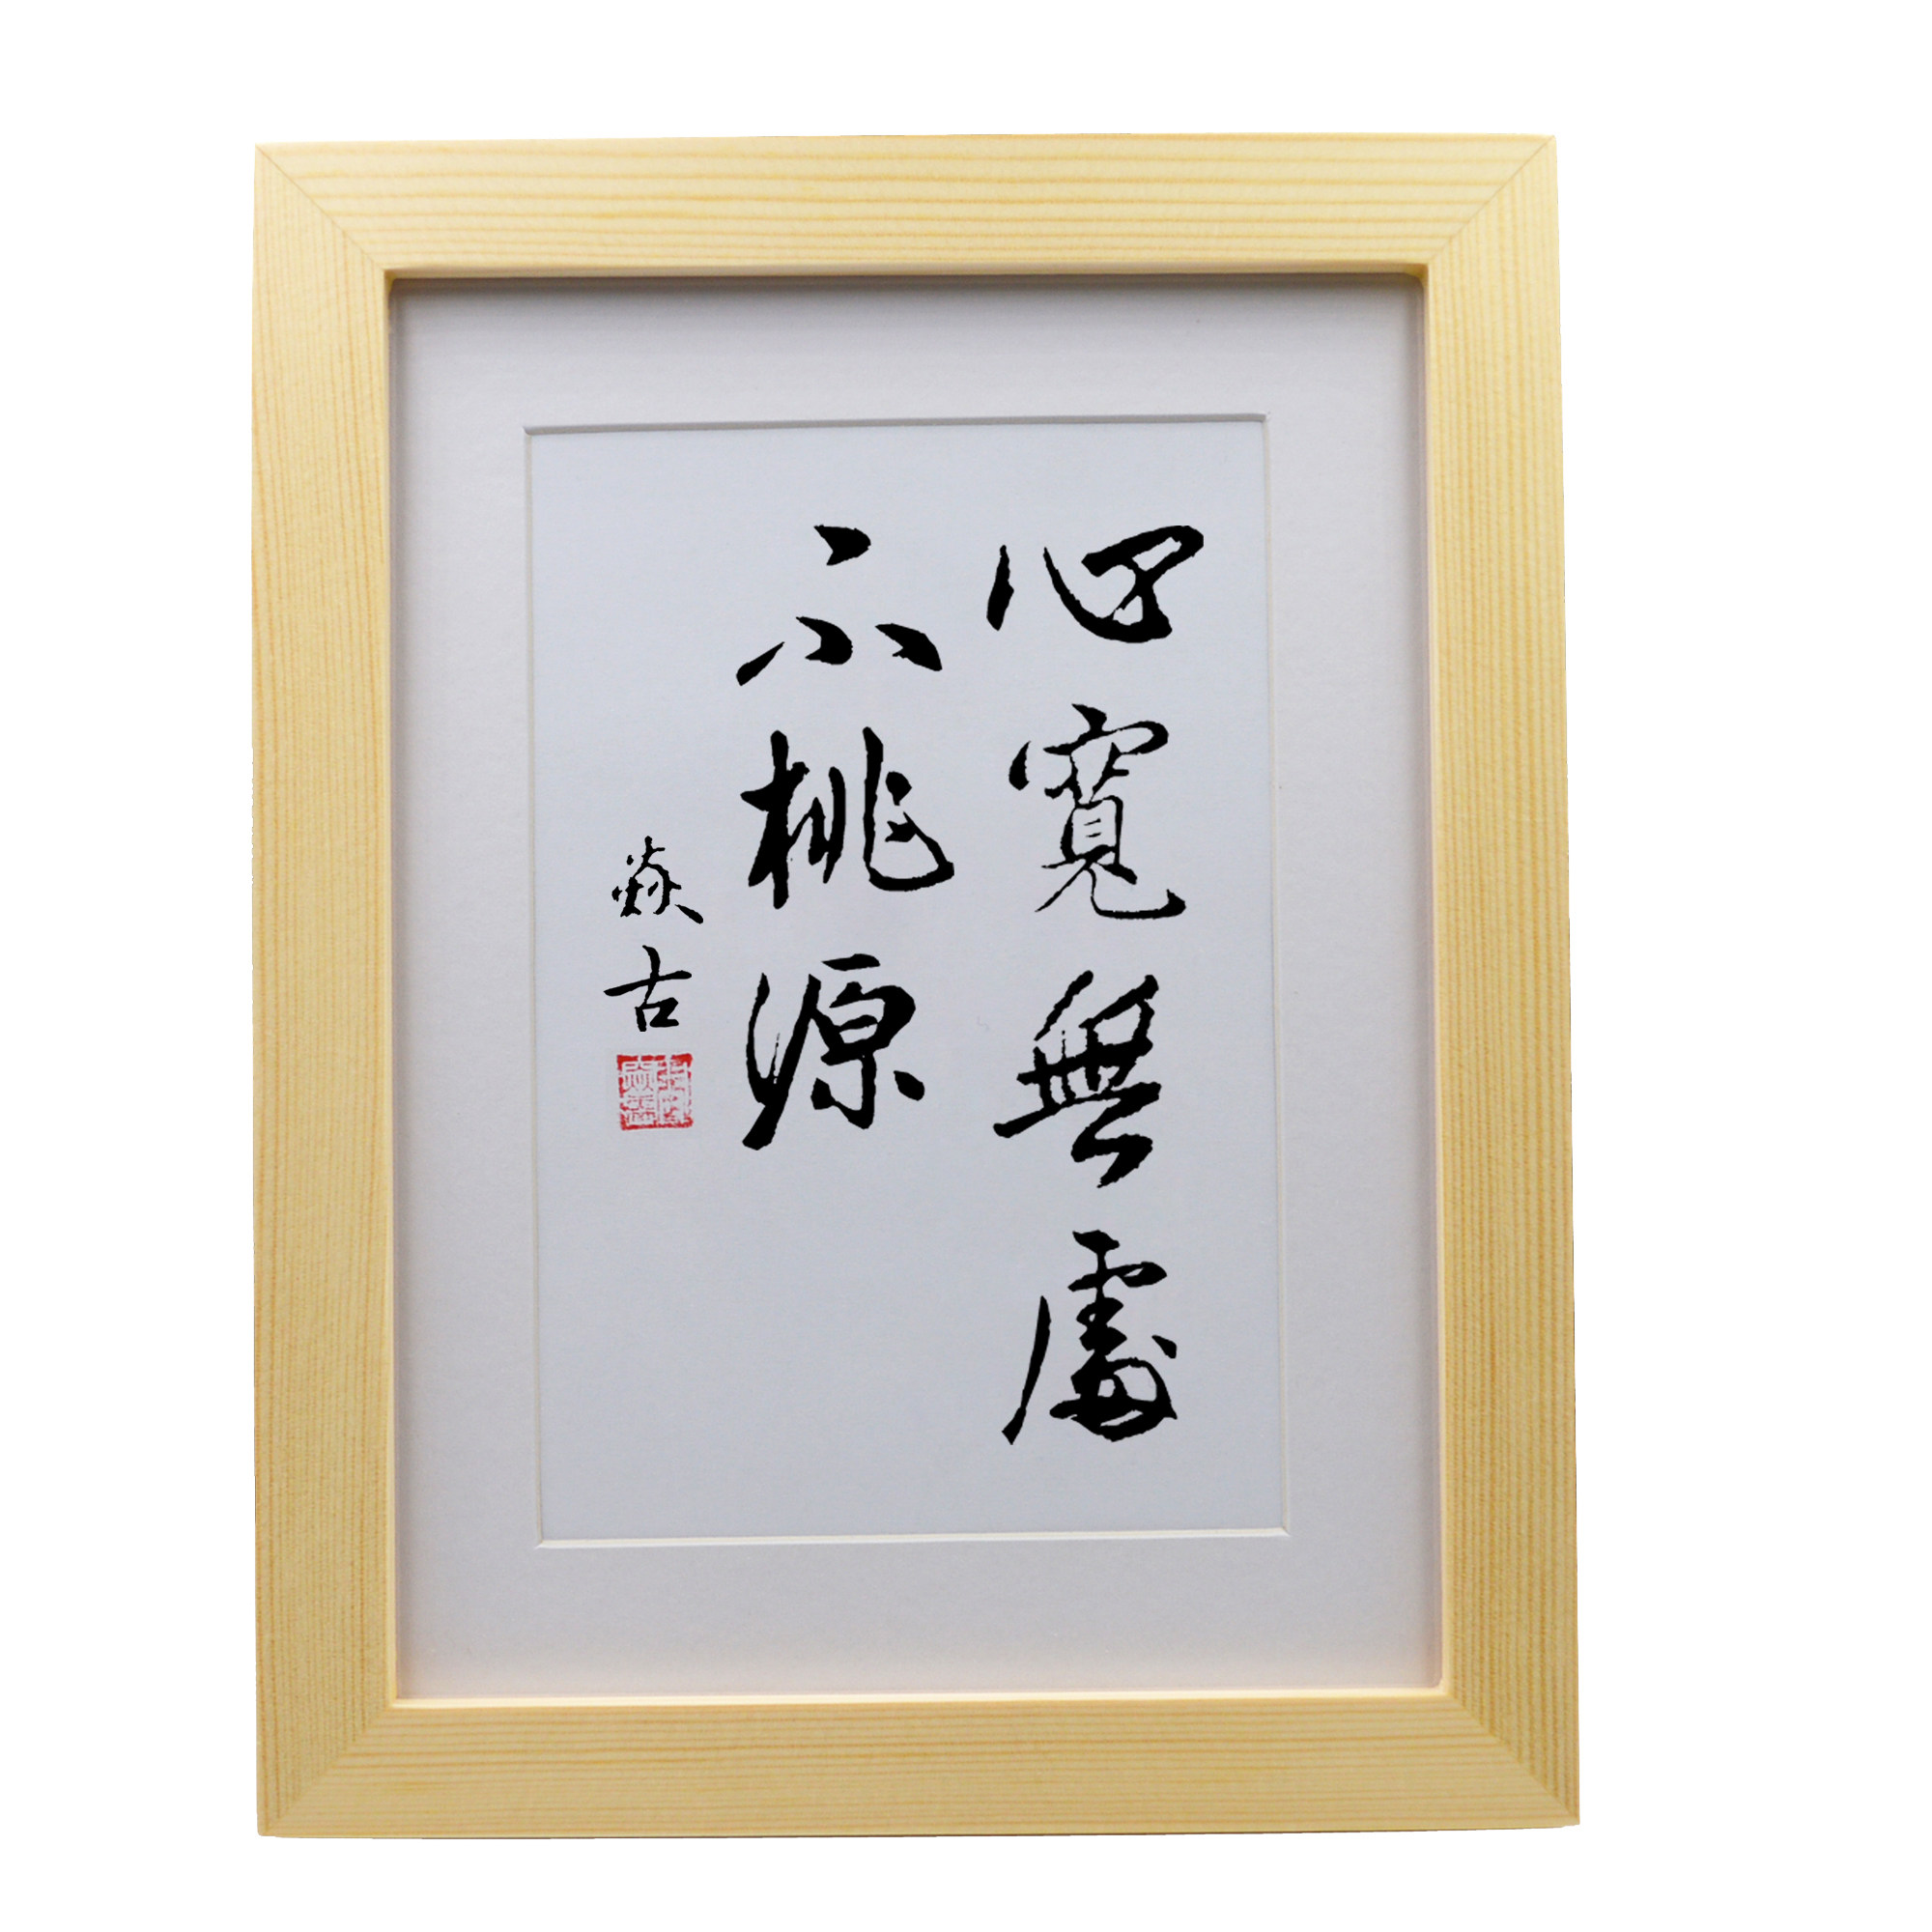 心寬無處
不桃源
焱古